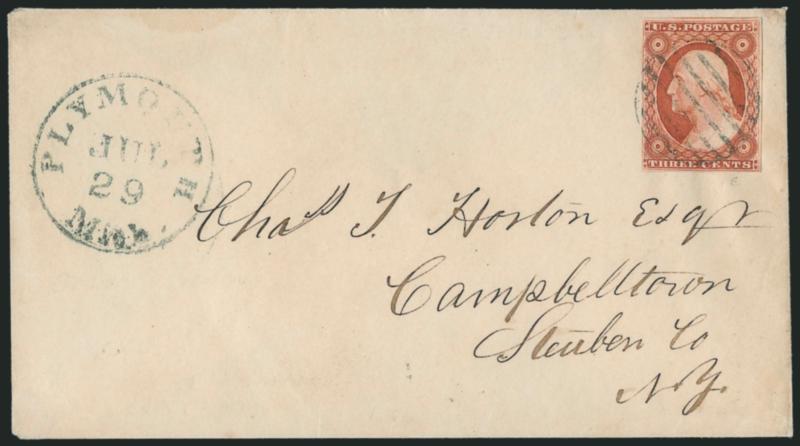 U.S. POSTAGE
THREE CENTS
PLYMOUTH
JUL
29
Chas T. Horton Esqr
Campbelltown
Steuben Co
N.Y.